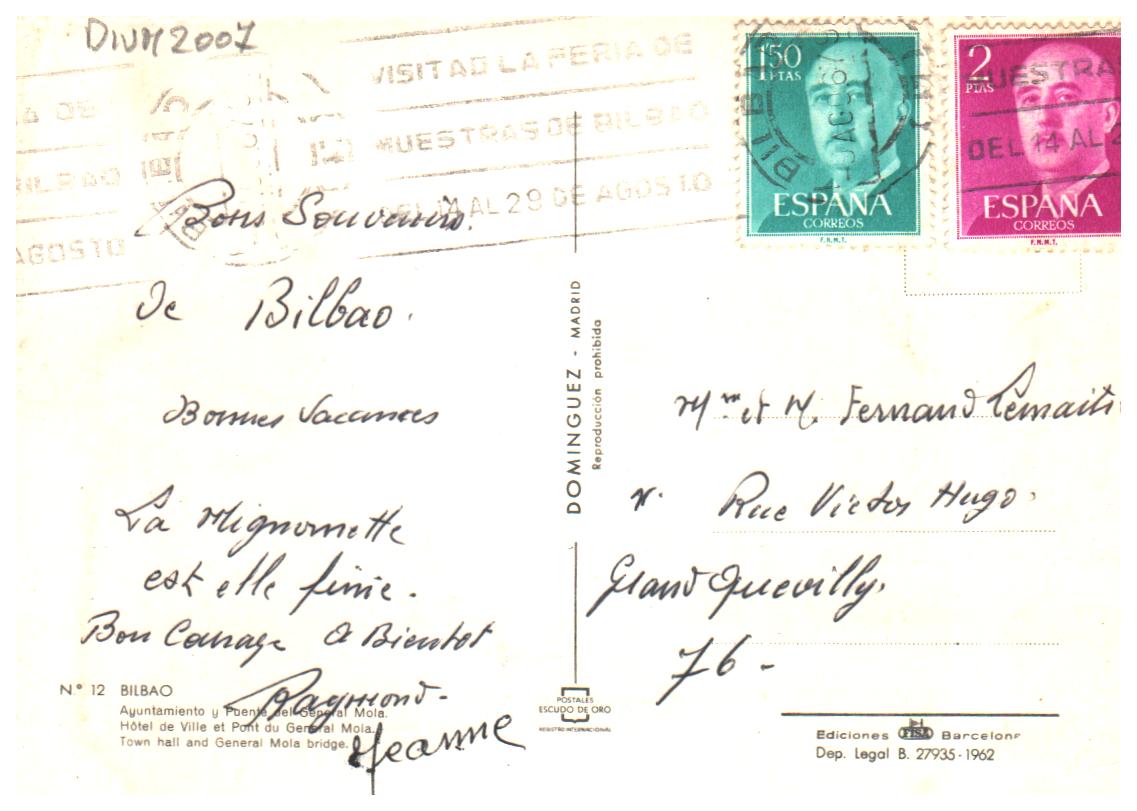 DIVM2007
VISITAD LA FERIA DE
MUESTRAS DE BILBAO
DEL 14 AL 29 DE AGOSTO
IA DE
BILBAO
AGOSTO
BILBAO
AGO
1'50
PTAS
ESPAÑA
CORREOS
F.N.M.T.
2
PTAS
MUESTRAS
DEL 14 AL 2
ESPAÑA
CORREOS
F.N.M.T.
Bons Souvenirs.
de Bilbao.
Bonnes Vacances
La Mignonette
est elle finie.
Bon Courage A Bientot
Raymond-
Jeanne
N.º 12 BILBAO
Ayuntamiento y Puente del General Mola.
Hôtel de Ville et Pont du General Mola.
Town hall and General Mola bridge.
DOMINGUEZ - MADRID
Reproducción prohibida
POSTALES
ESCUDO DE ORO
REGISTRO INTERNACIONAL
Mme et M. Fernand Lemaitr
Rue Victor Hugo.
Grand Quevilly.
76-
Ediciones FISA Barcelona
Dep. Legal B. 27935-1962